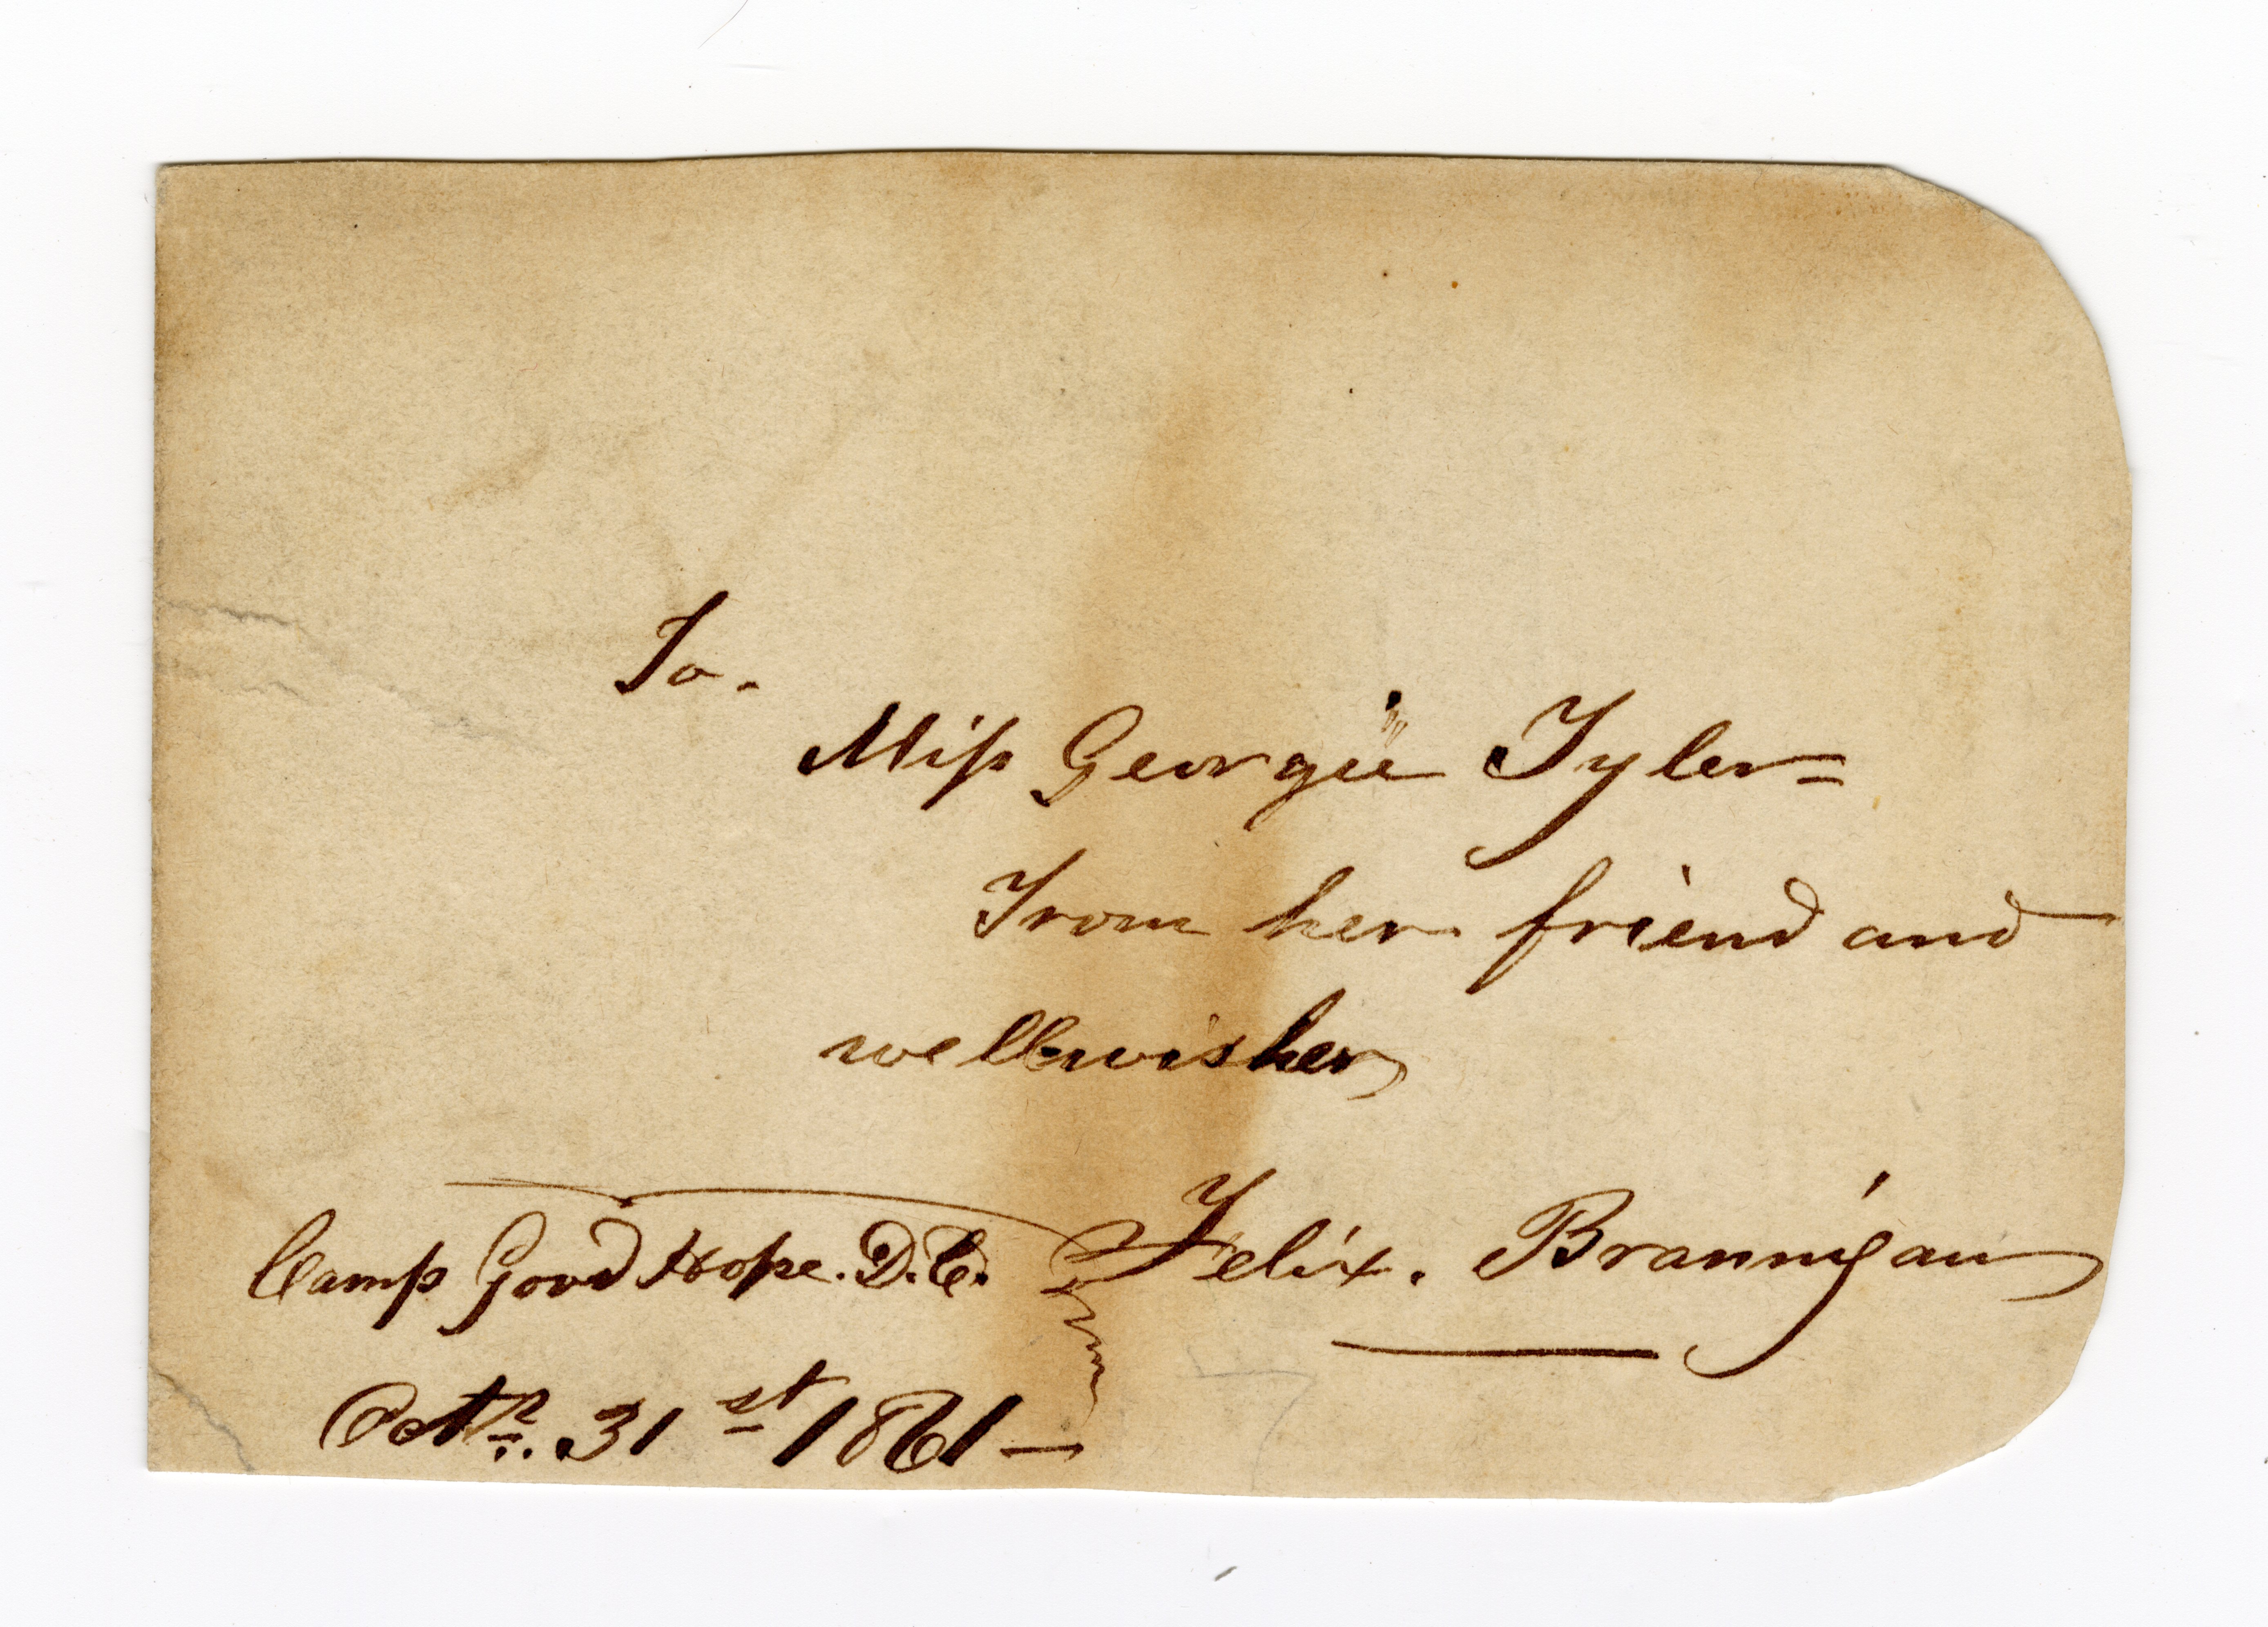 To.
Miss Georgie Tyler=
From her friend and
wellwisher
Felix. Brannigan
Camp Good Hope. D.C.
Octr. 31st 1861—